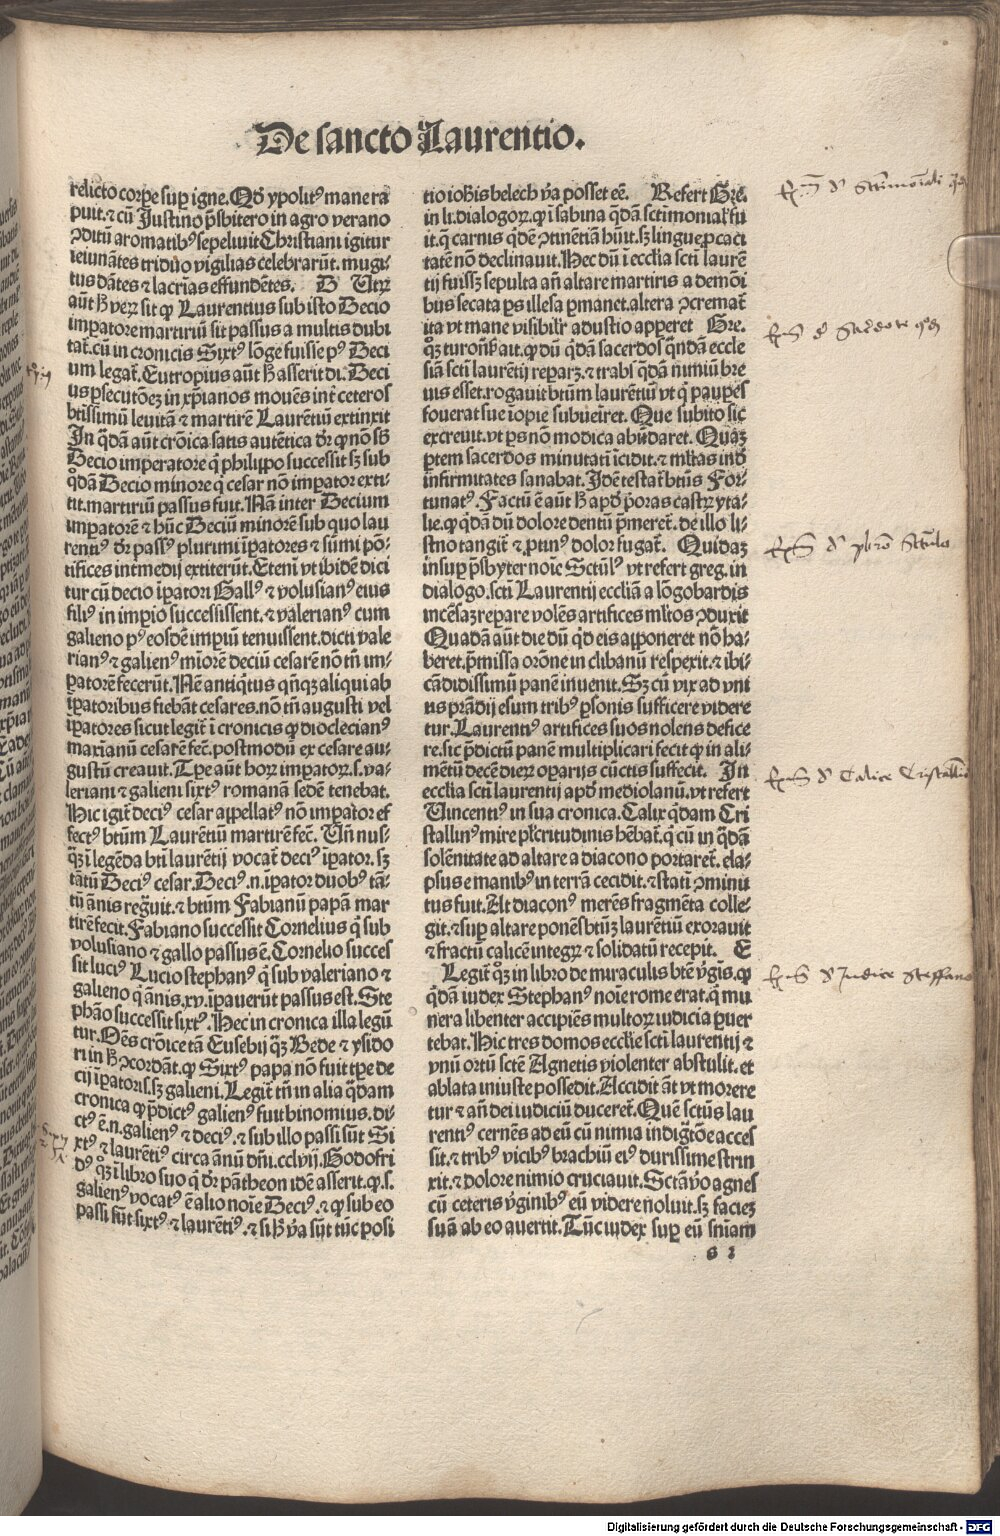 De sancto Laurentio.
relicto corpe sup igne. Qd ypolitꝰ mane ra
puit. ⁊ cū Justino p̄sbitero in agro verano
ꝯditū aromatibꝰ sepeliuit Christiani igitur
ieiunātes triduo vigilias celebrarūt. mugi⸗
tus dātes ⁊ lacrias effundētes. D Utꝝ
aūt h̄ verꝝ sit ꝙ Laurentius sub isto Decio
imꝑatore martiriū sit passus a multis dubi
tat̄. cū in cronicis Sixtꝰ lōge fuisse pꝰ Deci
um legat̄. Eutropius aūt h̄ asserit di. Deci
us ꝑsecutōeꝫ in xp̄ianos mouēs int̄ ceteros
btissimū leuitā ⁊ martirē Laurētiū extinxit
In q̄dā aūt crōica satis autētica dr̄ ꝙ nō sb̄
Decio imperatore q̄ philippo successit sꝫ sub
qd̄am Decio minore q̄ cesar nō imꝑator exti⸗
tit. martiriū passus fuit. Nā inter Decium
imꝑatorē ⁊ hūc Deciū minorē sub quo lau
rentiꝰ dr̄ passꝰ plurimi īꝑatores ⁊ sūmi pō⸗
tifices int̄medij extiterūt. Eteni vt ibidē dici
tur cū decio īꝑatori Gallꝰ ⁊ volusianꝰ eius
filiꝰ in imꝑio successissent. ⁊ valerianꝰ cum
galieno pꝰ eosdē imꝑiū tenuissent. dicti vale
rianꝰ ⁊ galienꝰ miorē deciū cesarē nō tn̄ im⸗
ꝑatorē fecerūt. Nā antiq̄tus qn̄qꝫ aliqui ab
īꝑatoribus fiebāt cesares. nō tn̄ augusti vel
īꝑatores sicut legit̄ ī cronicis ꝙ dioclecianꝰ
maxianū cesarē fec̄. postmodū ex cesare au⸗
gustū creauit. Tꝑe aūt hoꝝ imꝑatoꝝ. s. va⸗
leriani ⁊ galieni sixtꝰ romanā sedē tenebat.
Hic igit̄ deciꝰ cesar appellatꝰ nō imꝑator ef
fectꝰ btūm Laurētiū martirē fec̄. Un̄ nus⸗
q̄ꝫ ī legēda bti laurētij vocat̄ deciꝰ īꝑator. sꝫ
tātū Deciꝰ cesar. Deciꝰ. n. īꝑator duobꝰ tā⸗
tū ānis reg̅uit. ⁊ btūm Fabianū papā mar
tirē fecit. Fabiano successit Cornelius q̄ sub
volusiano ⁊ gallo passus ē. Cornelio succes
sit luciꝰ Lucio stephanꝰ q̄ sub valeriano ⁊
galieno q̄ ānis. xv. īpauerūt passus est. Ste
phāo successit sixtꝰ. Hec in cronica illa legū
tur. Oēs crōice tā Eusebij q̄ꝫ Bede ⁊ ysido
ri in h̄ ꝯcordāt. ꝙ Sixtꝰ papa nō fuit tꝑe de
cij īꝑatoris. sꝫ galieni. Legit̄ tn̄ in alia q̄dam
cronica ꝙ p̄dictꝰ galienꝰ fuit binomius. di⸗
ctꝰ ē. n. galienꝰ ⁊ deciꝰ. ⁊ sub illo passi sūt Si
xtꝰ ⁊ laurētiꝰ circa ānū dn̄i. cclvij. Godofri
dꝰ qꝫ ī libro suo q̄ dr̄ pātheon idē asserit. ꝙ. s.
galienꝰ vocatꝰ ē alio noīe Deciꝰ. ⁊ ꝙ sub eo
passi sūt sixtꝰ ⁊ laurētiꝰ. ⁊ si h̄ v̄a sijt tūc posi
tio iohīs belech v̄a posset eē. Refert Gre.
in li. dialogoꝝ. ꝙ ī sabina q̄dā sctimonial fu
it. q̄ carnis q̄dē ꝯtinētiā hūit. sꝫ lingue ꝓcaci
tatē nō declinauit. Hec dū ī ecclia scti laurē
tij fuissꝫ sepulta an̄ altare martiris a demōi
bus secata ꝑs illesa ꝑmanet. altera ꝯcremat̄
ita vt mane visibilr̄ adustio apꝑeret Gre.
qꝫ turon̄ ait. ꝙ dū q̄dā sacerdos q̄ndā eccle
siā scti laurētij reparꝫ. ⁊ trabs q̄dā nimiū bre
uis esset. rogauit btūm laurētiū vt q̄ paupes
fouerat sue īopie subueīret. Que subito sic
excreuit. vt ꝑs nō modica abūdaret. Quāꝫ
ꝑtem sacerdos minutatī īcidit. ⁊ mltas ind̄
infirmitates sanabat. Idē testat̄ btūs For⸗
tunatꝰ. Factū ē aūt h̄ apd̄ p̄oras castꝝ yta⸗
lie. ꝙ q̄dā dū dolore dentū p̄meret̄. de illo li⸗
gno tangit̄ ⁊ ꝓtinꝰ dolor fugat̄. Quidaꝫ
insup p̄sbyter noīe Sctulꝰ vt refert greg. in
dialogo. scti Laurentij eccliā a lōgobardis
incēsaꝫ repare volēs artifices mltos ꝯduxit
Quadā aūt die dū qd̄ eis apponeret nō ha⸗
beret. p̄missa orōne in clibanū respexit. ⁊ ibi⸗
cādidissimū panē inuenit. Sꝫ cū vix ad vni
us prādij esum tribꝰ ꝑsonis sufficere videre
tur. Laurentiꝰ artifices suos nolens defice
re. sic p̄dictū panē multiplicari fecit ꝙ in ali⸗
mētū decē dieꝝ oꝑarijs cūctis suffecit. In
ecclia scti laurentij apd̄ mediolanū. vt refert
Uincentiꝰ in sua cronica. Calix q̄dam Cri
stallinꝰ mire plc̄ritudinis hēbat̄. q̄ cū in q̄dā
solēnitate ad altare a diacono portaret̄. ela⸗
psus e manibꝰ in terrā cecidit. ⁊ statī ꝯminu
tus fuit. At diaconꝰ merēs fragmēta colle⸗
git. ⁊ sup altare ponēs btūꝫ laurētiū exorauit
⁊ fractū calicē integꝝ ⁊ solidatū recepit. E
Legit̄ qꝫ in libro de miraculis btē v̄gīs. ꝙ
q̄dā iudex Stephanꝰ noīe rome erat. q̄ mu
nera libenter accipiēs multoꝝ iudicia ꝑuer
tebat. Hic tres domos ecclie scti laurentij ⁊
vnū ortū sctē Agnetis violenter abstulit. et
ablata iniuste possedit. Accidit āt vt morere
tur ⁊ an̄ dei iudiciū duceret̄. Quē sctūs lau
rentiꝰ cernēs ad eū cū nimia indig̅tōe acces
sit. ⁊ tribꝰ vicibꝰ brachiū eiꝰ durissime strin
xit. ⁊ dolore nimio cruciauit. Sctā v̄o agnes
cū ceteris v̄ginibꝰ eū videre noluit. sꝫ facieꝫ
suā ab eo auertit. Tūc iudex sup eū sn̄iam
Digitalisierung gefördert durch die Deutsche Forschungsgemeinschaft -
DFG